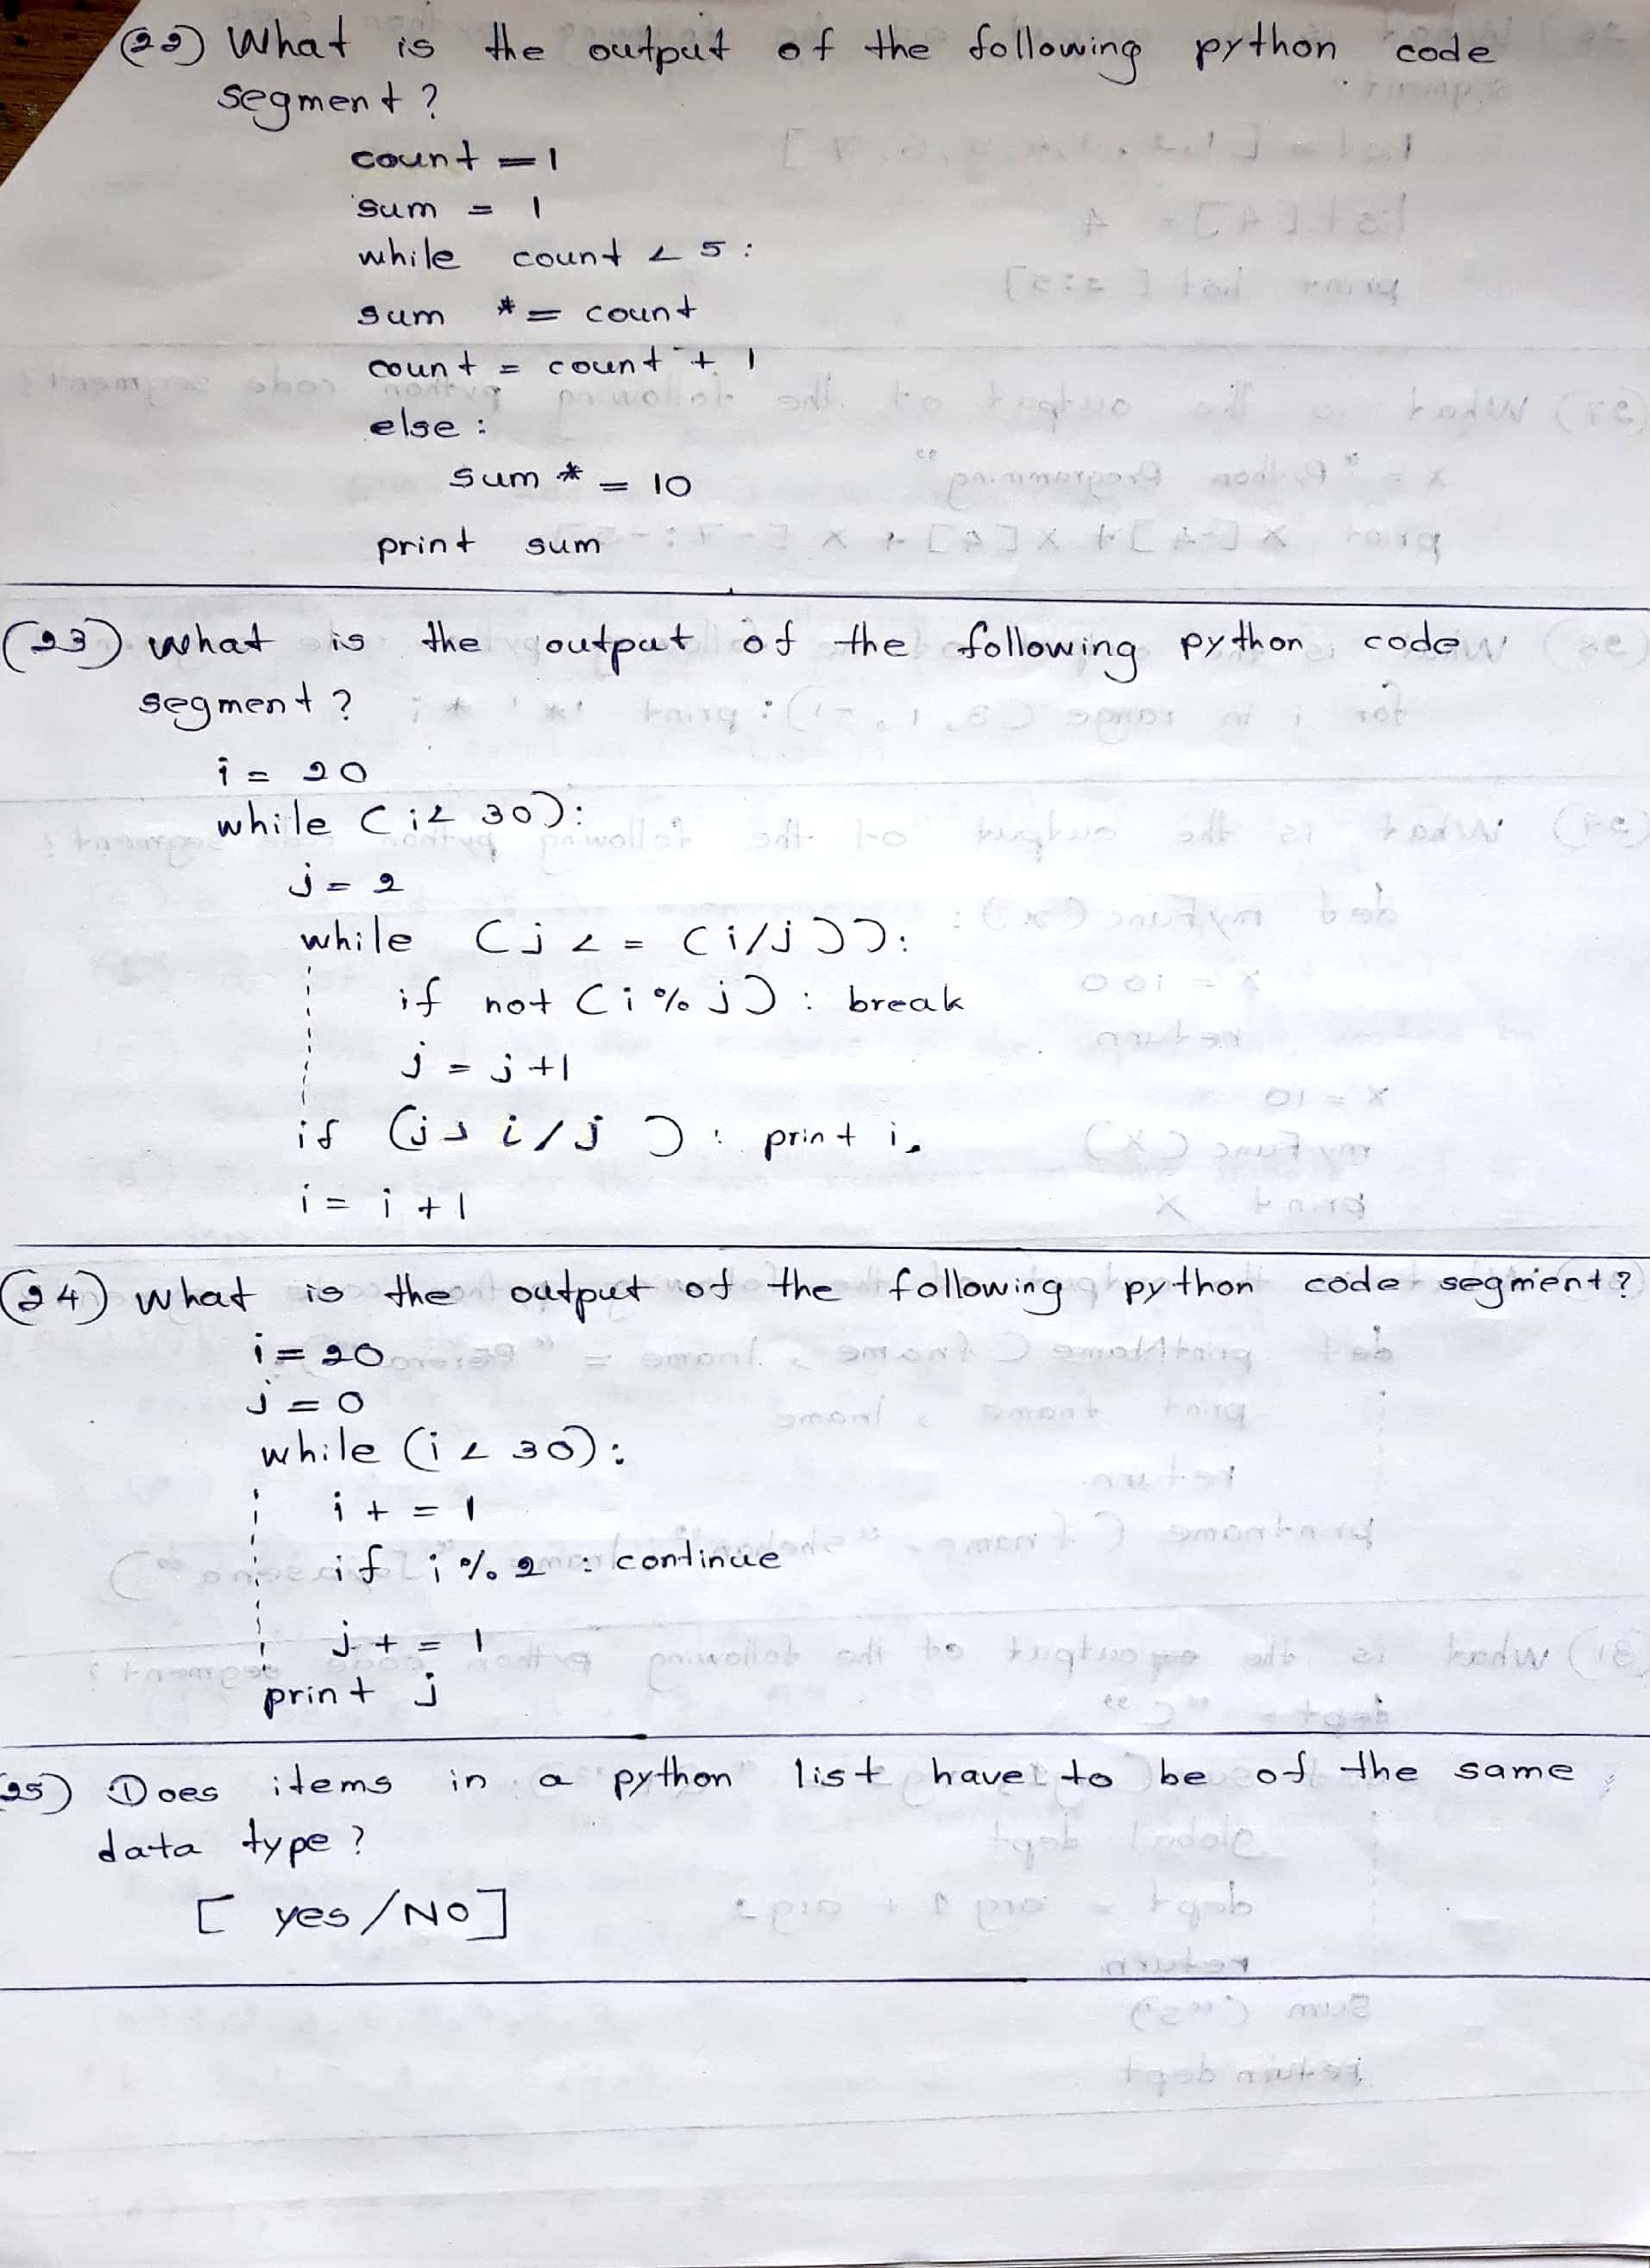 (22) What is the output of the following python code
segment?
count = 1
sum = 1
while count < 5:
sum *= count
count = count + 1
else:
sum *= 10
print sum
(23) what is the output of the following python code
segment?
i = 20
while (i< 30):
j = 2
while (j < = (i/j)):
if not (i % j) : break
j = j+1
if (j > i/j ) : print i,
i = i + 1
(24) what is the output of the following python code segment?
i = 20
j = 0
while (i < 30):
i + = 1
if i % 2 : continue
j + = 1
print j
25) Does items in a python list have to be of the same
data type?
[ yes/NO]